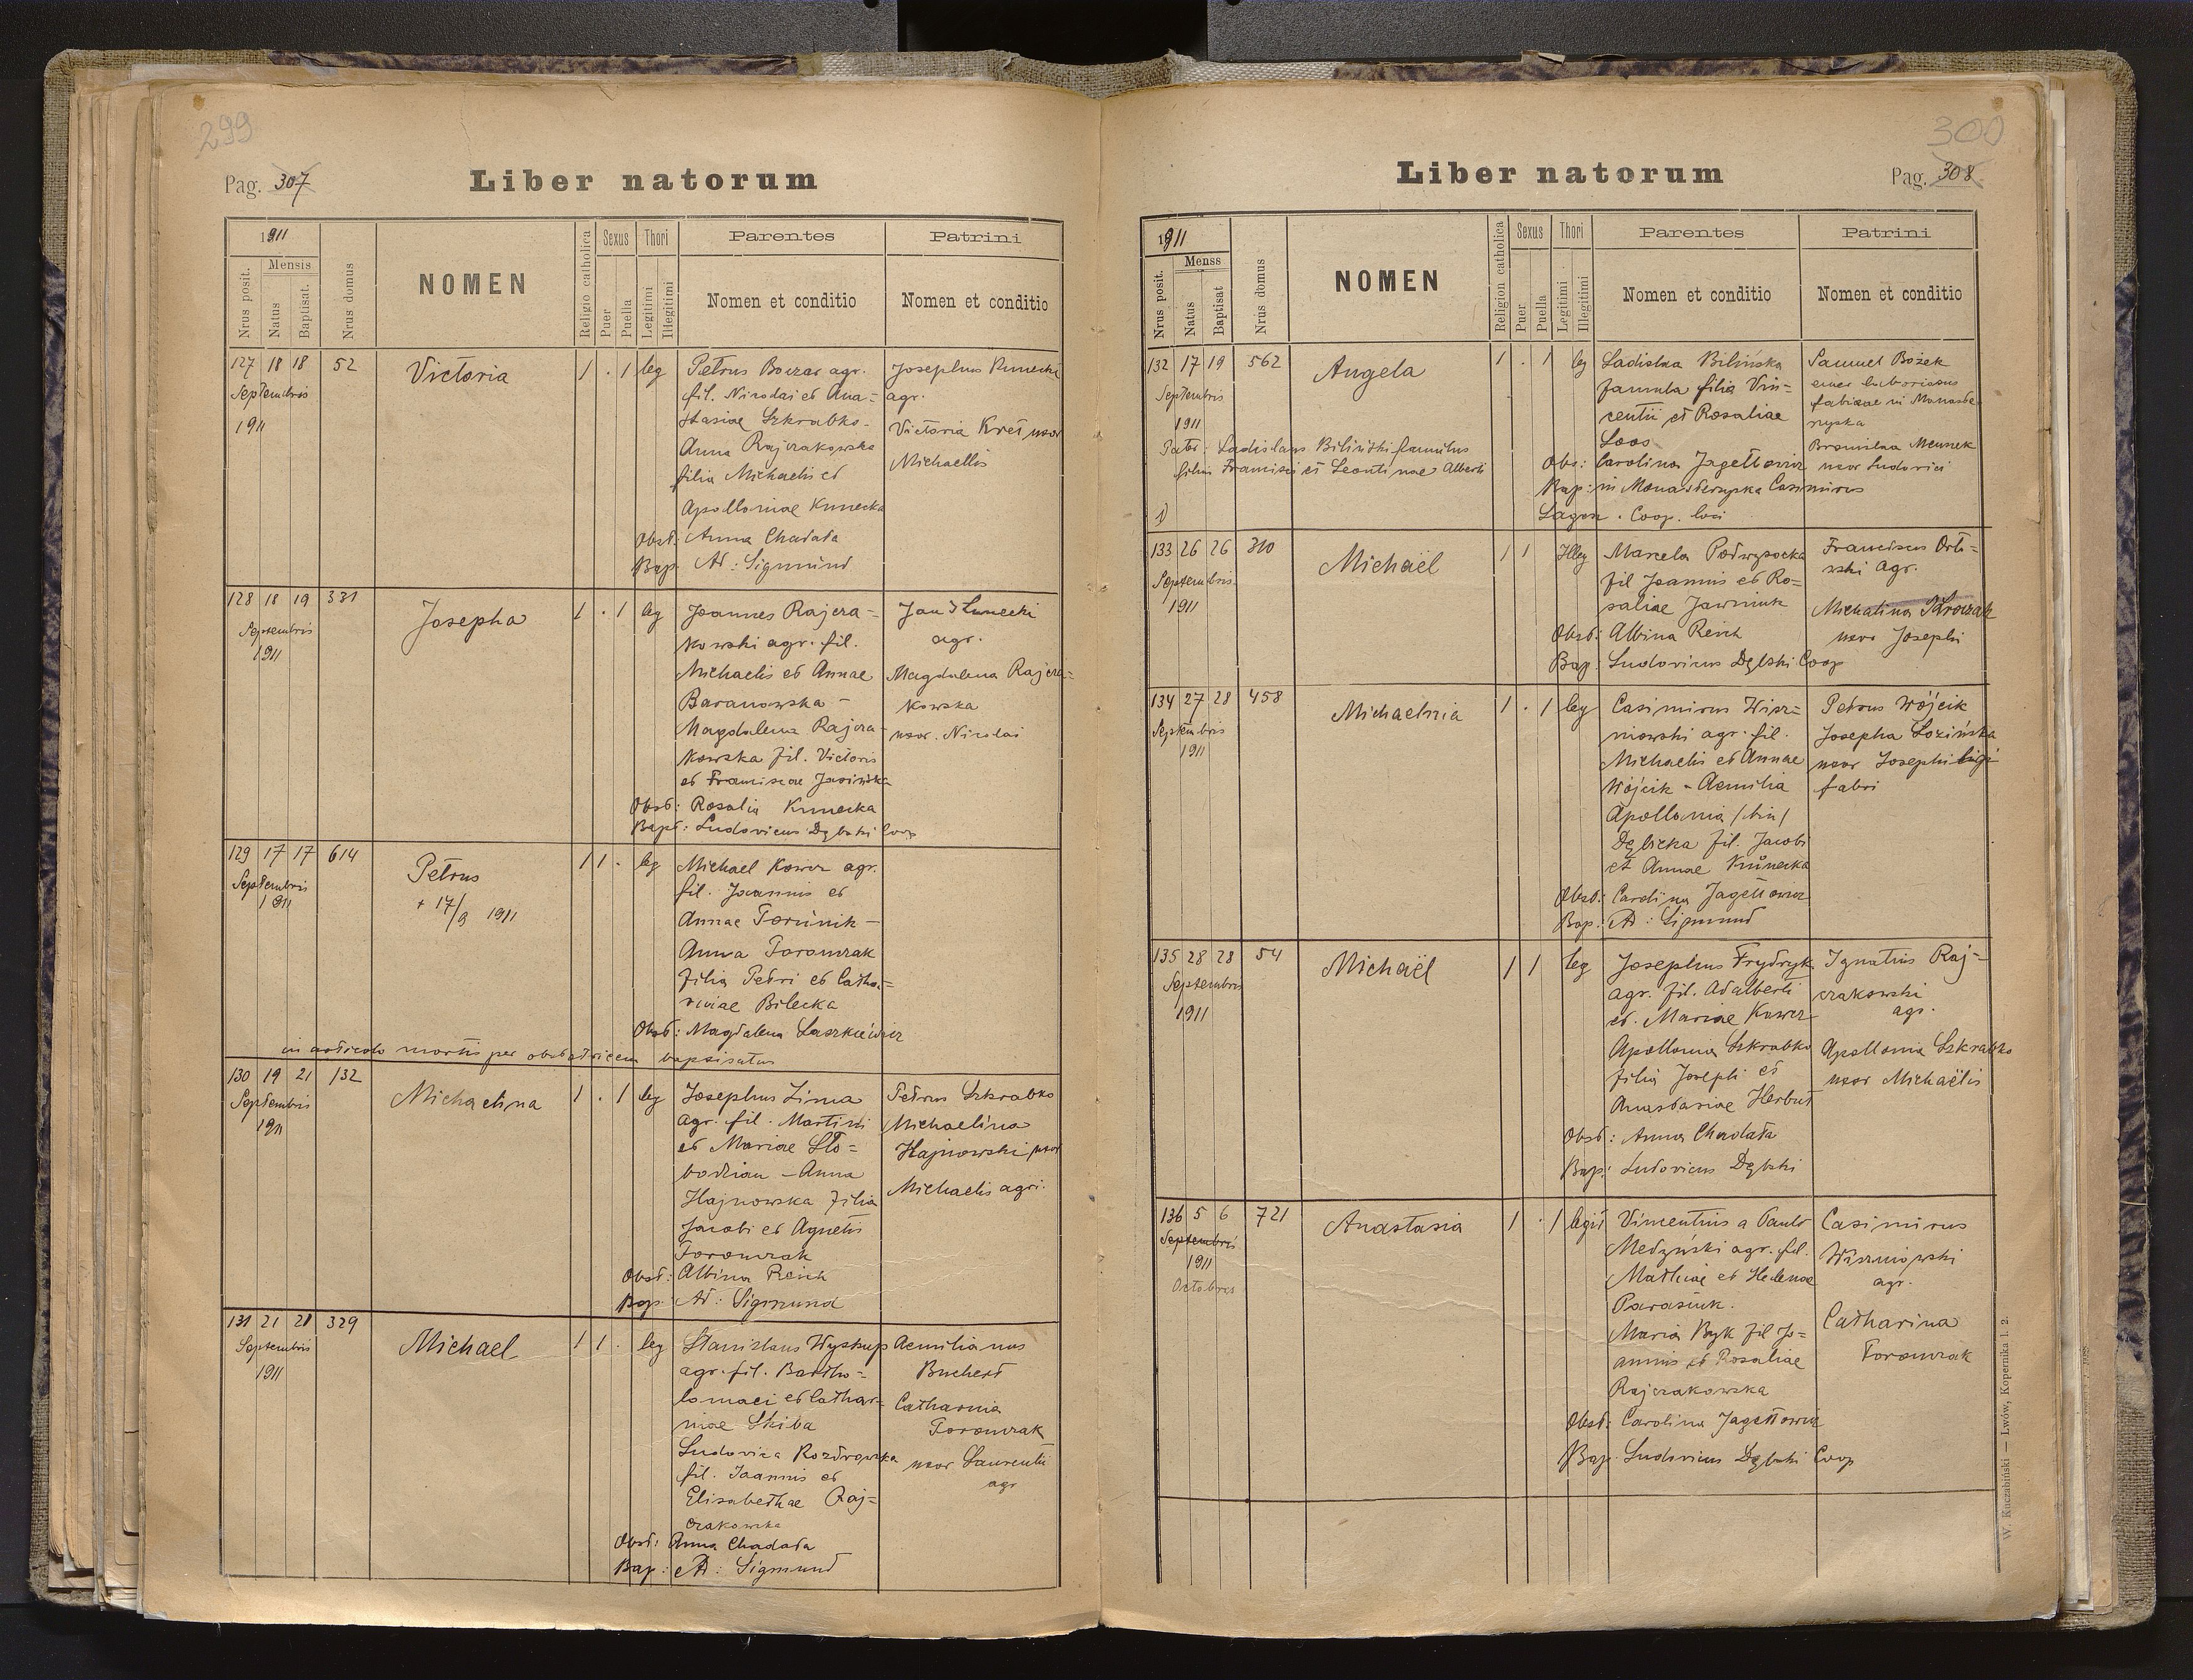 299
Pag. 307
Liber natorum
1911
Mensis
Nrus posit.
Natus
Baptisat.
Nrus domus
NOMEN
Religio catholica
Sexus
Puer
Puella
Thori
Legitimi
Illegitimi
Parentes
Nomen et conditio
Patrini
Nomen et conditio
127 18 18 52
Septembris
1911
Victoria
1 . 1 leg
Petrus Boczar agr.
fil. Nicolai et Ana=
stasiae Szkrabko -
Anna Rajczakowska
filia Michaelis et
Apolloniae Kunecka
Obst: Anna Chadata
Bap: Ad: Sigmund
Josephus Kunecki
agr.
Victoria Kret uxor
Michaellis
128 18 19 331
Septembris
1911
Josepha
1 . 1 leg
Joannes Rajcza=
kowski agr. fil.
Michaelis et Annae
Baranowska -
Magdalena Rajcza-
kowska fil. Victoris
et Franciscae Jasinska
Obst: Rosalia Kunecka
Bapt: Ludovicus Dębski Coop
Jan Kunecki
agr.
Magdalena Rajcza=
kowska
uxor. Nicolai
129 17 17 614
Septembris
1911
Petrus
+ 17/9 1911
1 1 . leg
Michael Kowcz agr.
fil. Joannis et
Annae
Anna Toronczak
filia Petri et Catha=
rinae Bilecka
Obst: Magdalena Laszkiewicz
in articolo mortis per obstatricem baptisatus
130 19 21 132
Septembris
1911
Michaelina
1 . 1 leg
Josephus Zima
agr. fil. Martini
et Mariae Sło=
bodzian - Anna
Hajnowska filia
Jacobi et Agnetis
Toronczak
Obst: Albina Reich
Bap: Ad: Sigmund
Petrus Szkrabko
Michaelina
Hajnowski uxor
Michaelis agri.
131 21 21 329
Septembris
1911
Michael
1 1 . leg
Stanislaus Wyskup
agr. fil. Bartho=
lomaei et Cathar=
inae Skiba
Ludovica
fil. Joannis et
Elisabethae Raj=
czakowska
Obst: Anna Chadata
Bap: Ad: Sigmund
Aemilianus
Buchert
Catharina
Toronczak
uxor Laurentii
agr
300
Liber natorum
Pag. 308
1911
Menss
Nrus posit.
Natus
Baptisat
Nrus domus
NOMEN
Religion catholica
Sexus
Puer
Puella
Thori
Legitimi
Illegitimi
Parentes
Nomen et conditio
Patrini
Nomen et conditio
132 17 19 562
Septembris
1911
Angela
1 . 1 leg
Ladislaa Bilińska
famula filia Vin=
centii et Rosaliae
Loos
Patr: Ladislaus Biliński famulus
filius Francisci et Leontinae Alberti
Obs: Carolina Jagełłowicz
Bap: in Monasterzyska Casimirus
Coop. loci
Samuel Bożek
fabicae in Monaste
rzyska
Bronislaa
uxor Ludovici
133 26 26 310
Septembris
1911
Michaël
1 1 Illeg
Marcela Podwysocka
fil Joannis et Ro=
saliae Jawniuk
Obst: Albina Reich
Bap: Ludovicus Dębski Coop
Franciscus Orli=
wski agr.
Michalina
uxor Josephi
134 27 28 458
Septembris
1911
Michaelina
1 . 1 leg
Casimirus Wisz=
niowski agr. fil.
Michaelis et Annae
Wójcik - Aemilia
Apollonia /bin/
Dębicka fil. Jacobi
et Annae Kunecka
Obst: Carolina Jagełłowicz
Bap: Ad: Sigmund
Petrus Wójcik
Josepha Łozińska
uxor Josephi
fabri
135 28 28 54
Septembris
1911
Michaël
1 1 leg
Josephus Frydryk
agr. fil. Adalberti
et. Mariae Kowcz
Apollonia Szkrabko
filia Josephi et
Anastasiae Herbut
Obst: Anna Chadata
Bap: Ludovicus Dębski
Ignatius Raj=
czakowski
agr.
Apollonia Szkrabko
uxor Michaëlis
136 5 6 721
Septembris
1911
Octobris
Anastasia
1 . 1 legit
Vincentius a Paulo
Medyński agr. fil.
Mathiae et Helenae
Parasiuk.
Maria Byk fil Jo=
annis et Rosaliae
Rajczakowska
Obst: Carolina Jagełłowicz
Bap: Ludovicus Dębski Coop
Casimirus
Wiszniowski
agr.
Catharina
Toronczak
W. Kuczabiński — Lwów, Kopernika l. 2.